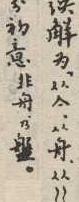 解為、从亼、从舟、从巜
初意非舟乃盤。